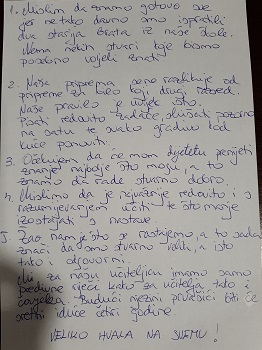 1. Mislim da znamo gotovo sve
jer ne tako davno smo ispratili
dva starija brata iz naše škole.
Nema nekih stvari koje bismo
posebno voljeli znati
2. Naša priprema se ne razlikuje od
pripreme za bilo koji drugi razred.
Naše pravilo je uvijek isto.
Pisati redovito zadaće, slušati pozorno
na satu te svako gradivo kod
kuće ponoviti.
3. Očekujem da će mom djetetu prenijeti
znanje najbolje što mogu, a to
znamo da rade stvarno dobro.
4. Mislimo da je najvažnije redovito i s
razumijevanjem učiti te što manje
izostajati s nastave.
5. Žao nam je što se rastajemo, a to sada
znači da smo stvarno veliki, a isto
tako i odgovorni.
Mi za našu učiteljicu imamo samo
predivne riječi kako za učitelja, tako i
čovjeka. Budući njezini prvašići bit će
sretni iduće četiri godine.
VELIKO HVALA NA SVEMU!